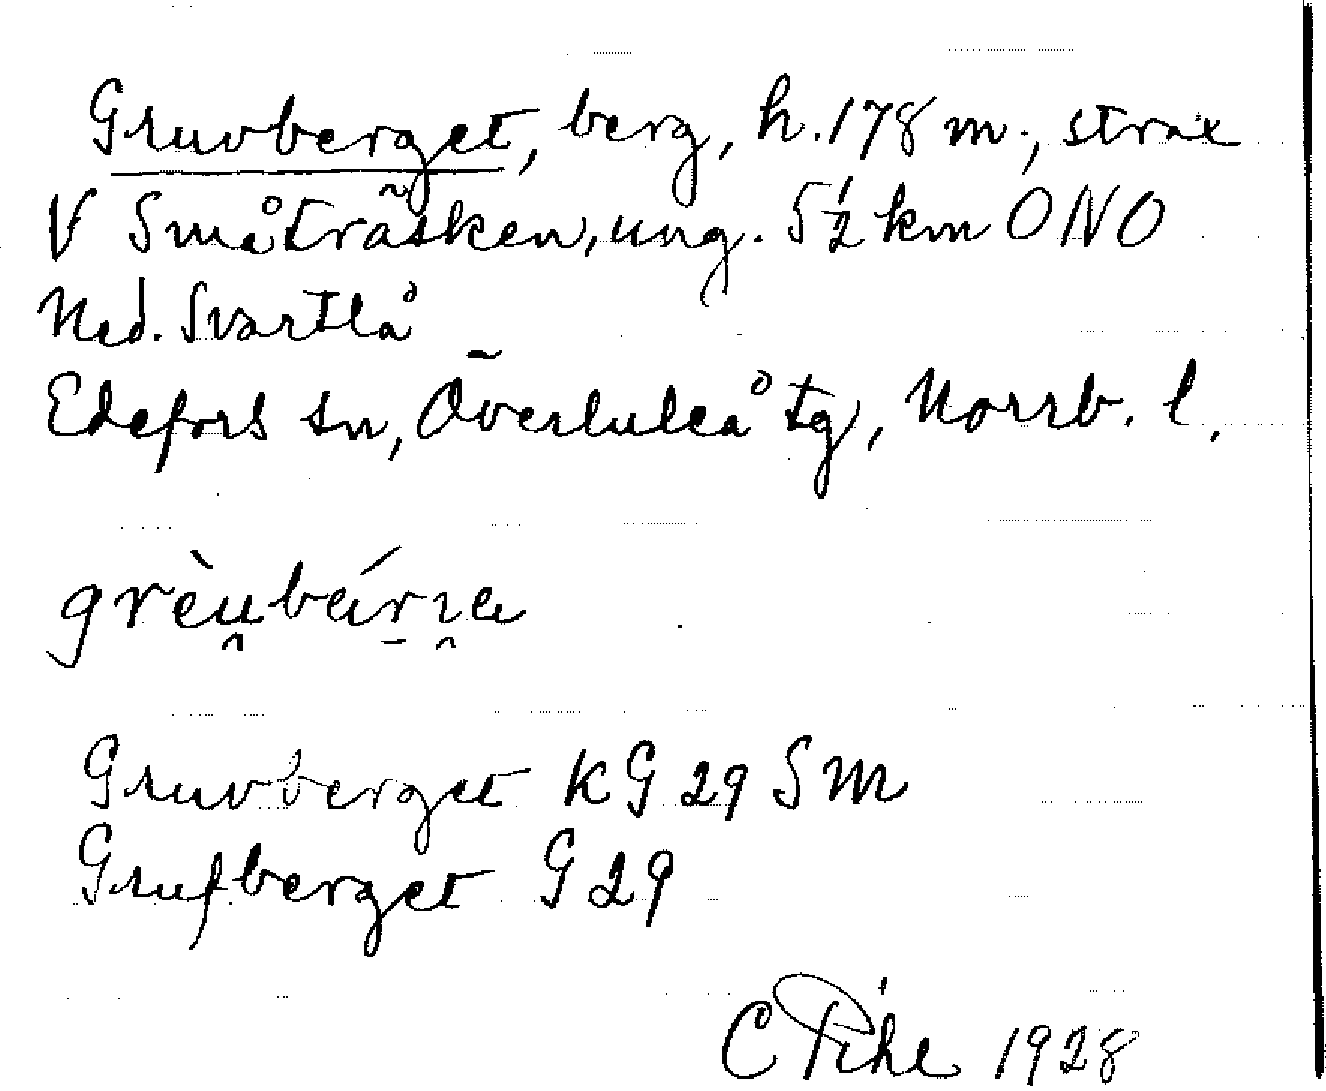 Gruvberget, berg, h. 178 m., strax
V Småträsken, ung. 5½ km ONO
Ned. Svartlå
Edefors sn, Överluleå tg, Norrb. l.
Gruvberget KG 29 SM
Grufberget G 29
C Pihl 1928